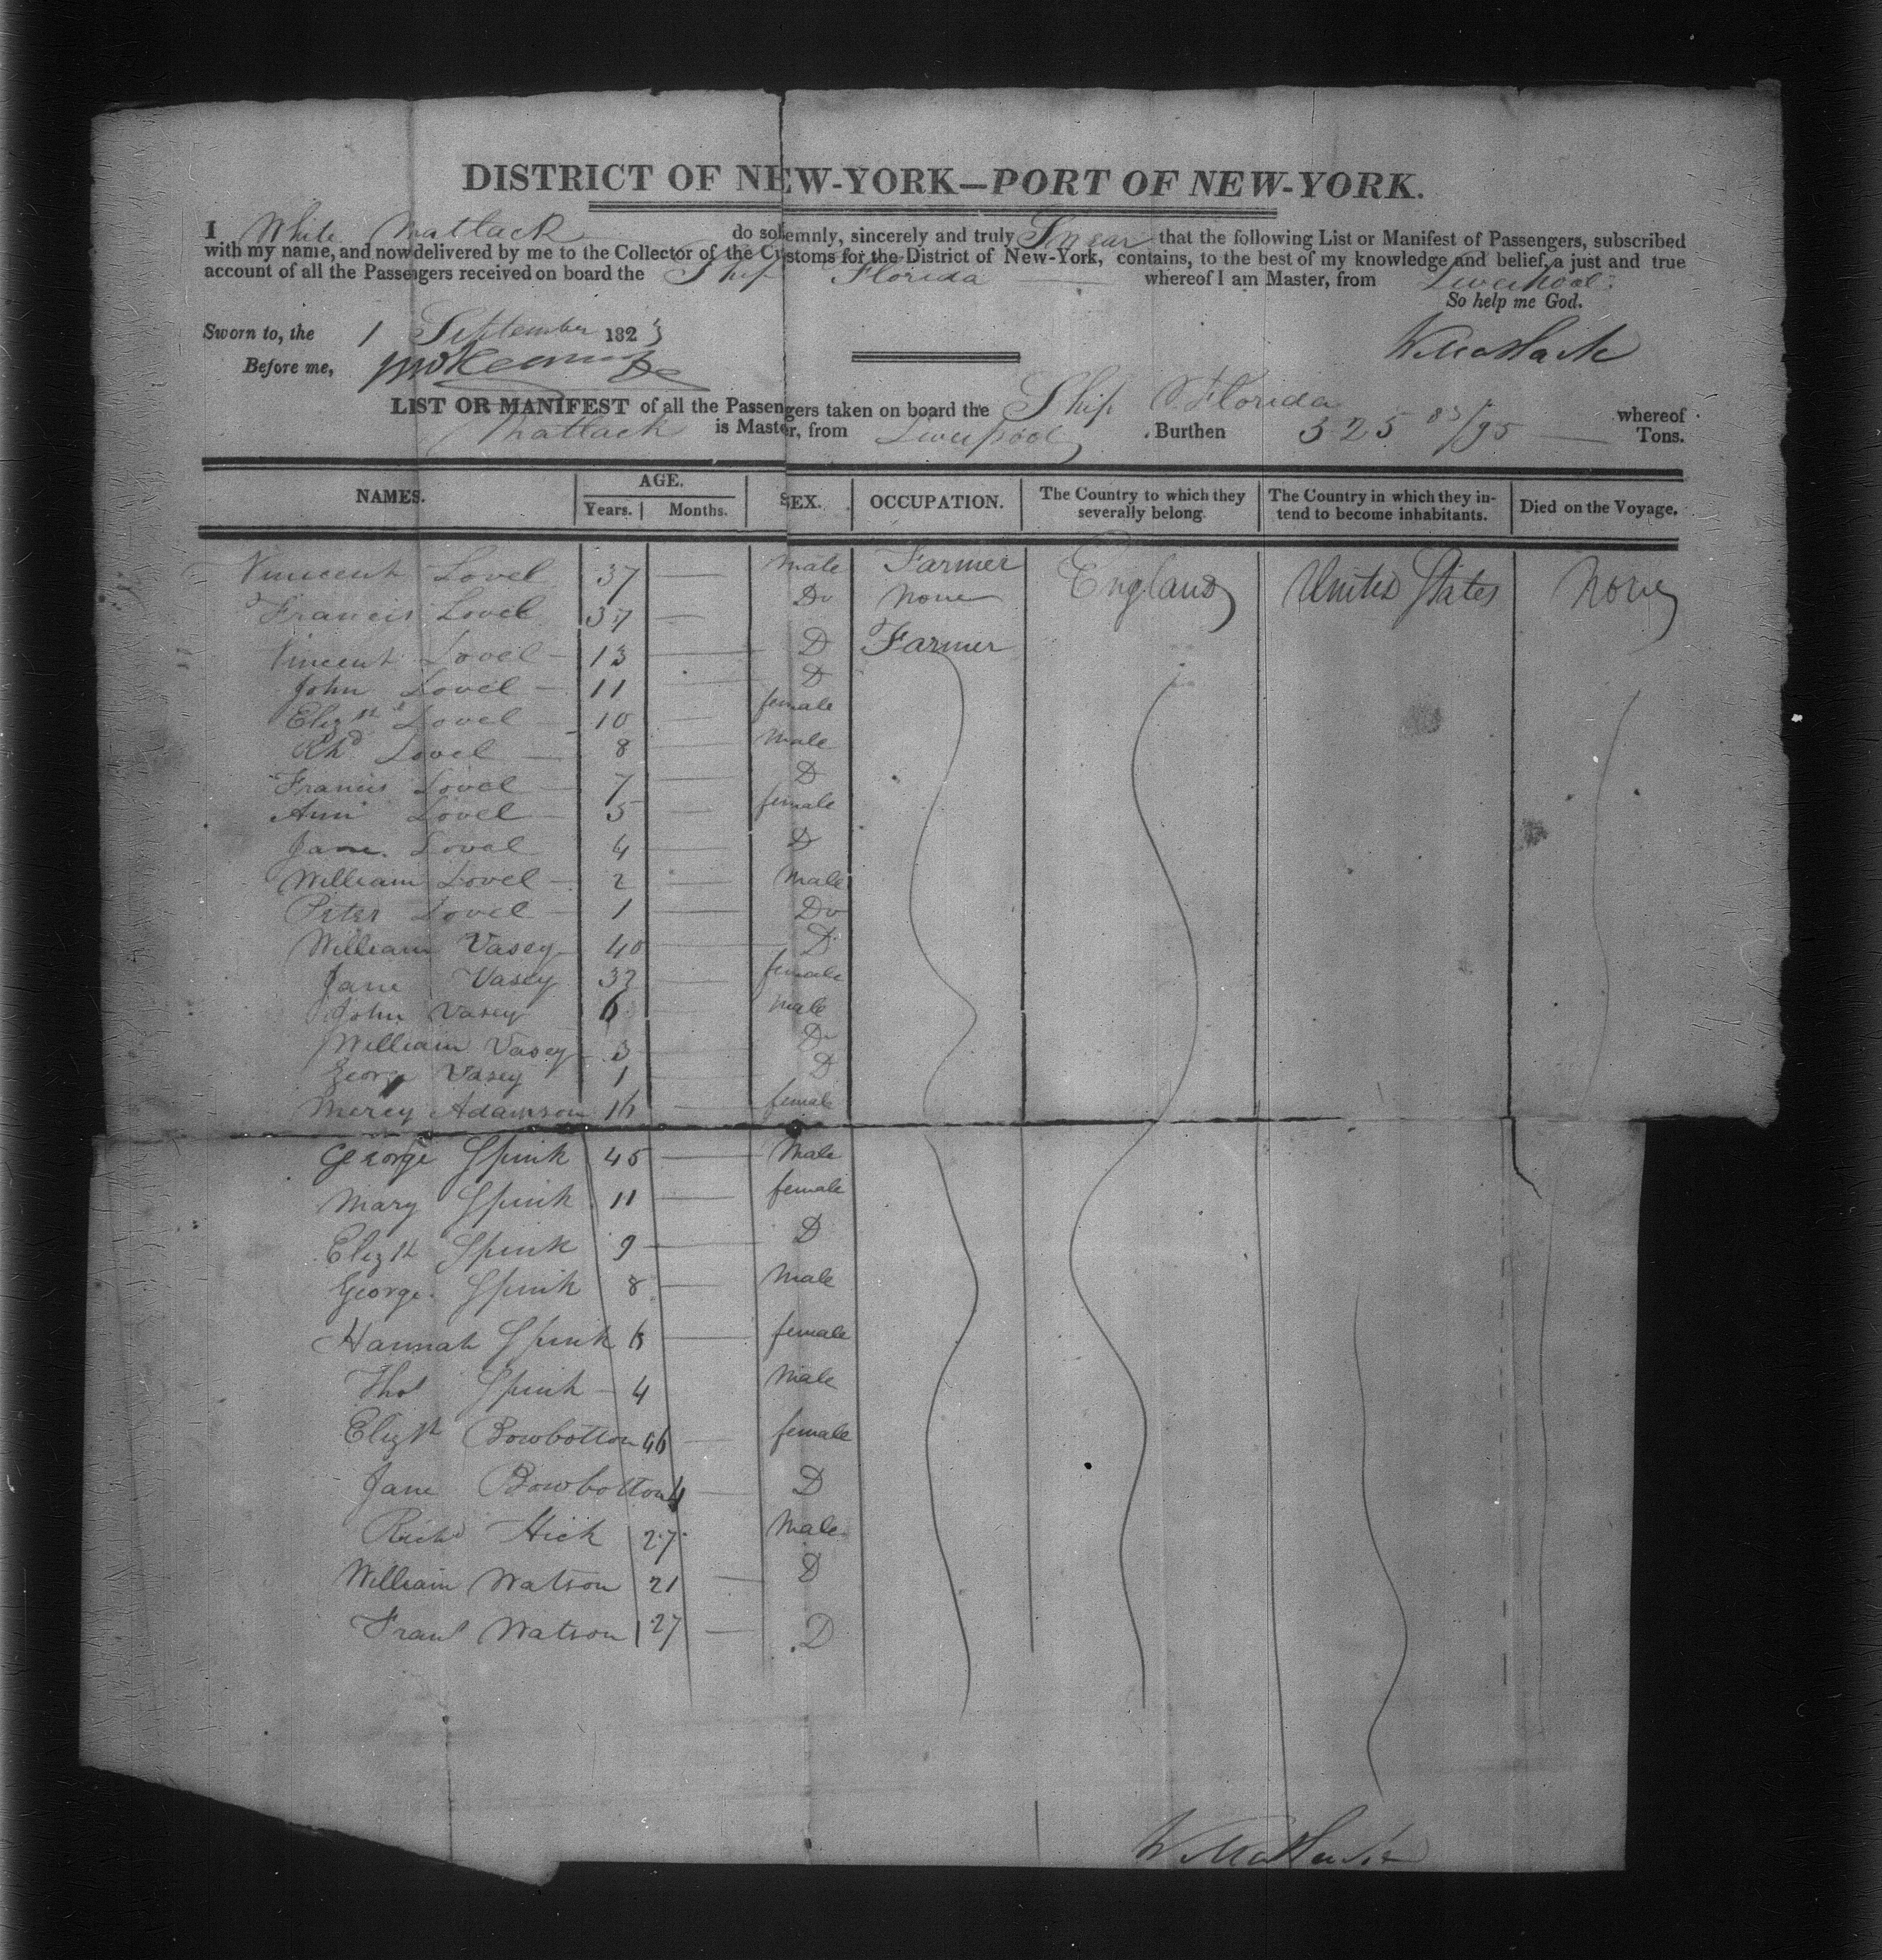 DISTRICT OF NEW-YORK—PORT OF NEW-YORK.
I White Matlack do solemnly, sincerely and truly Swear that the following List or Manifest of Passengers, subscribed
with my name, and now delivered by me to the Collector of the Customs for the District of New-York, contains, to the best of my knowledge and belief, a just and true
account of all the Passengers received on board the Ship Florida whereof I am Master, from Liverpool
So help me God.
Sworn to, the 1 September 1823
W Matlack
Before me,
LIST OR MANIFEST of all the Passengers taken on board the Ship Florida whereof
Matlack is Master, from Liverpool Burthen 325 83/95 Tons.
NAMES. AGE. Years. Months. SEX. OCCUPATION. The Country to which they severally belong. The Country in which they intend to become inhabitants. Died on the Voyage.
Vinecent Lovel 37 — Male Farmer England United States None
Francis Lovel 37 — Do None
Vincent Lovel 13 — D Farmer
John Lovel 11 D
Elizth Lovel 10 — female
Rhd Lovel 8 — Male
Francis Lovel 7 — D
Ann Lovel 5 — female
Jane Lovel 4 — D
William Lovel 2 — Male
Peter Lovel 1 — Do
William Vasey 40 — D
Jane Vasey 32 — female
John Vasey 6 Male
William Vasey 3 Do
George Vasey 1 D
Mercy Adamson 16 — female
George Spink 45 — Male
Mary Spink 11 — female
Elizth Spink 9 — D
George Spink 8 — Male
Hannah Spink 6 — female
Thos Spink 4 Male
Elizth Bowbottom 46 — female
Jane Bowbottom 4 — D
Richd Hick 27 Male
William Watson 21 — D
Frans Watson 27 — D
W Matlack